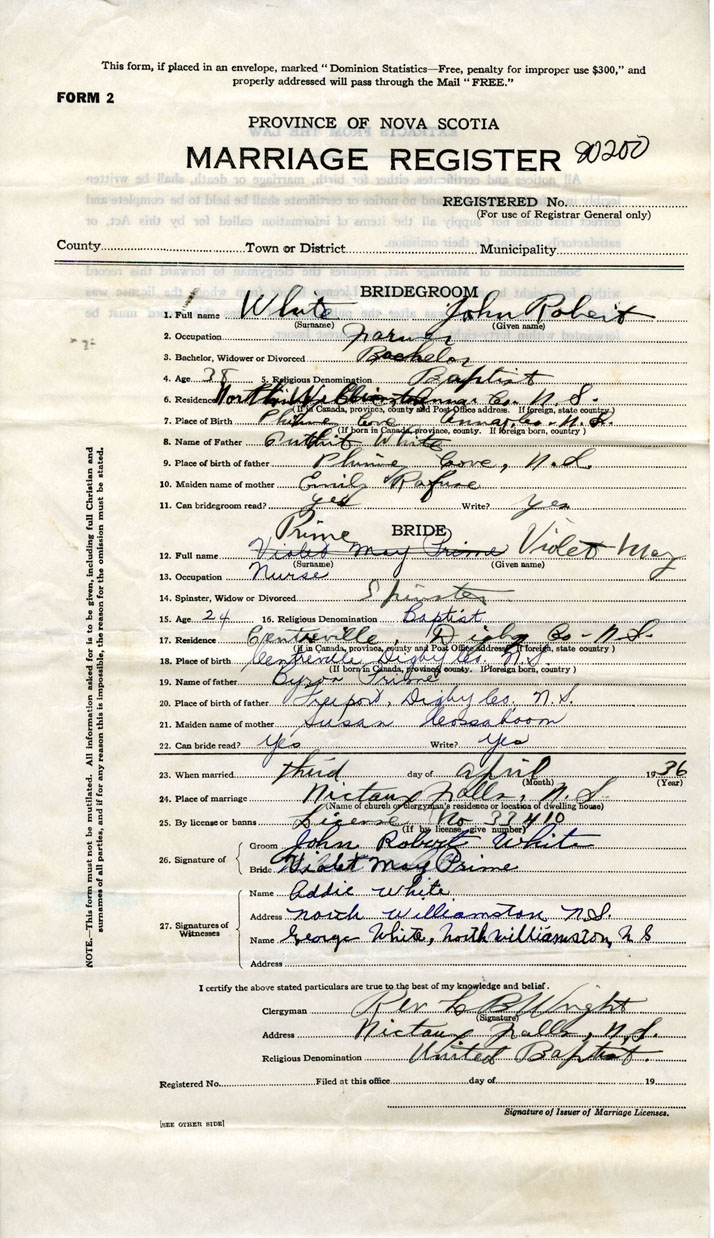 This form, if placed in an envelope, marked " Dominion Statistics—Free, penalty for improper use $300," and
properly addressed will pass through the Mail " FREE."
FORM 2
PROVINCE OF NOVA SCOTIA
MARRIAGE REGISTER 90200
REGISTERED No.
(For use of Registrar General only)
County Town or District Municipality
BRIDEGROOM
1. Full name White John Robert
(Surname) (Given name)
2. Occupation Farmer
3. Bachelor, Widower or Divorced Bachelor
4. Age 38 5. Religious Denomination Baptist
6. Residence North Williamston Annar. Co. N. S.
(If in Canada, province, county and Post Office address. If foreign, state country)
7. Place of Birth Phinne Cove Annar. Co. N. S.
(If born in Canada, province, county. If foreign born, country)
8. Name of Father White
9. Place of birth of father Phinne Cove, N.S.
10. Maiden name of mother Emily Rafuse
11. Can bridegroom read? yes Write? yes
BRIDE
12. Full name Prime Violet May Prime Violet May
(Surname) (Given name)
13. Occupation Nurse
14. Spinster, Widow or Divorced Spinster
15. Age 24 16. Religious Denomination Baptist
17. Residence Centreville, Digby Co. N. S.
(If in Canada, province, county and Post Office address. If foreign, state country)
18. Place of birth Centreville Digby Co. N. S.
(If born in Canada, province, county. If foreign born, country)
19. Name of father Byron Prime
20. Place of birth of father Freeport, Digby Co. N. S.
21. Maiden name of mother Susan Cossaboom
22. Can bride read? Yes Write? Yes
23. When married third day of april 1936
(Month) (Year)
24. Place of marriage Nictaux Falls, N. S.
(Name of church or clergyman's residence or location of dwelling house)
25. By license or banns License No 33410
(If by license, give number)
26. Signature of
Groom John Robert White
Bride Violet May Prime
27. Signatures of Witnesses
Name Addie White
Address North Williamston, N.S.
Name George White, North Williamston, N S
Address
I certify the above stated particulars are true to the best of my knowledge and belief.
Clergyman Rev L B Wright
(Signature)
Address Nictaux Falls, N.S.
Religious Denomination United Baptist.
Registered No. Filed at this office day of 19
Signature of Issuer of Marriage Licenses.
[SEE OTHER SIDE]
NOTE.—This form must not be mutilated. All information asked for is to be given, including full Christian and
surnames of all parties, and if for any reason this is impossible, the reason for the omission must be stated.